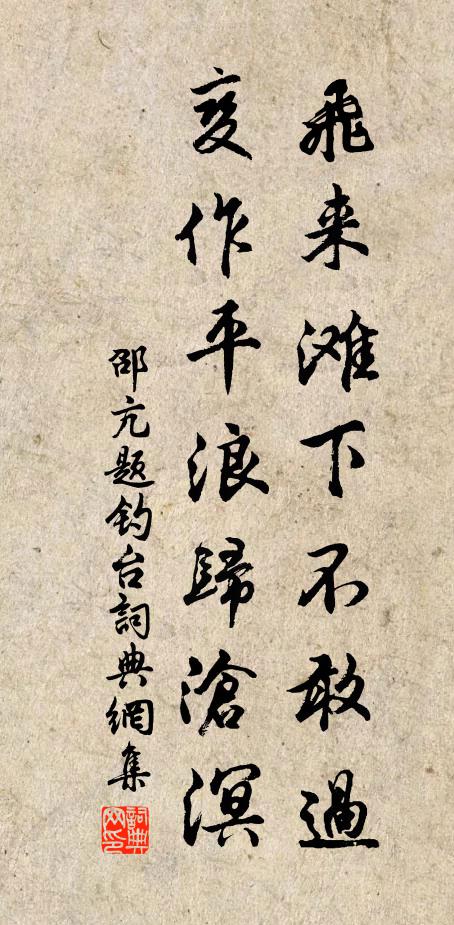 飛来滩下不敢過
变作平浪歸滄溟
邵亢题钓台詞典網集
詞典網印